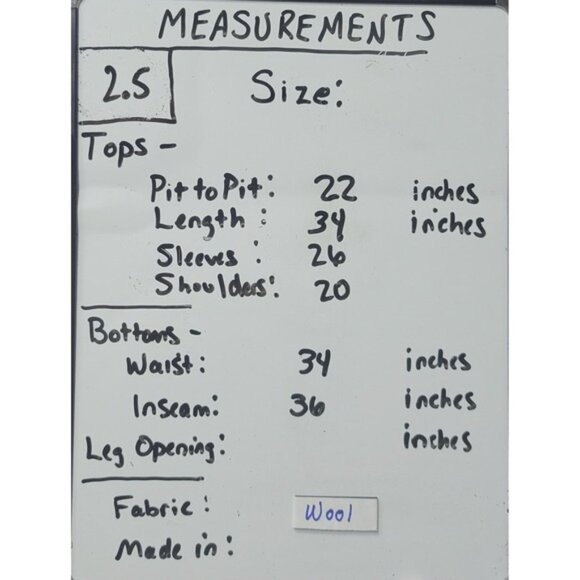 MEASUREMENTS
2.5 Size:
Tops -
Pit to Pit: 22 inches
Length: 34 inches
Sleeves: 26
Shoulders: 20
Bottoms -
Waist: 34 inches
Inseam: 36 inches
Leg Opening: inches
Fabric: Wool
Made in: